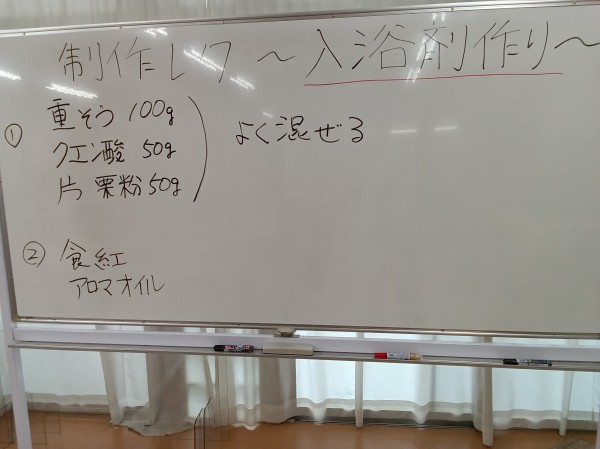 制作レク 〜入浴剤作り〜
① 重そう 100g
クエン酸 50g
片栗粉 50g
よく混ぜる
② 食紅
アロマオイル